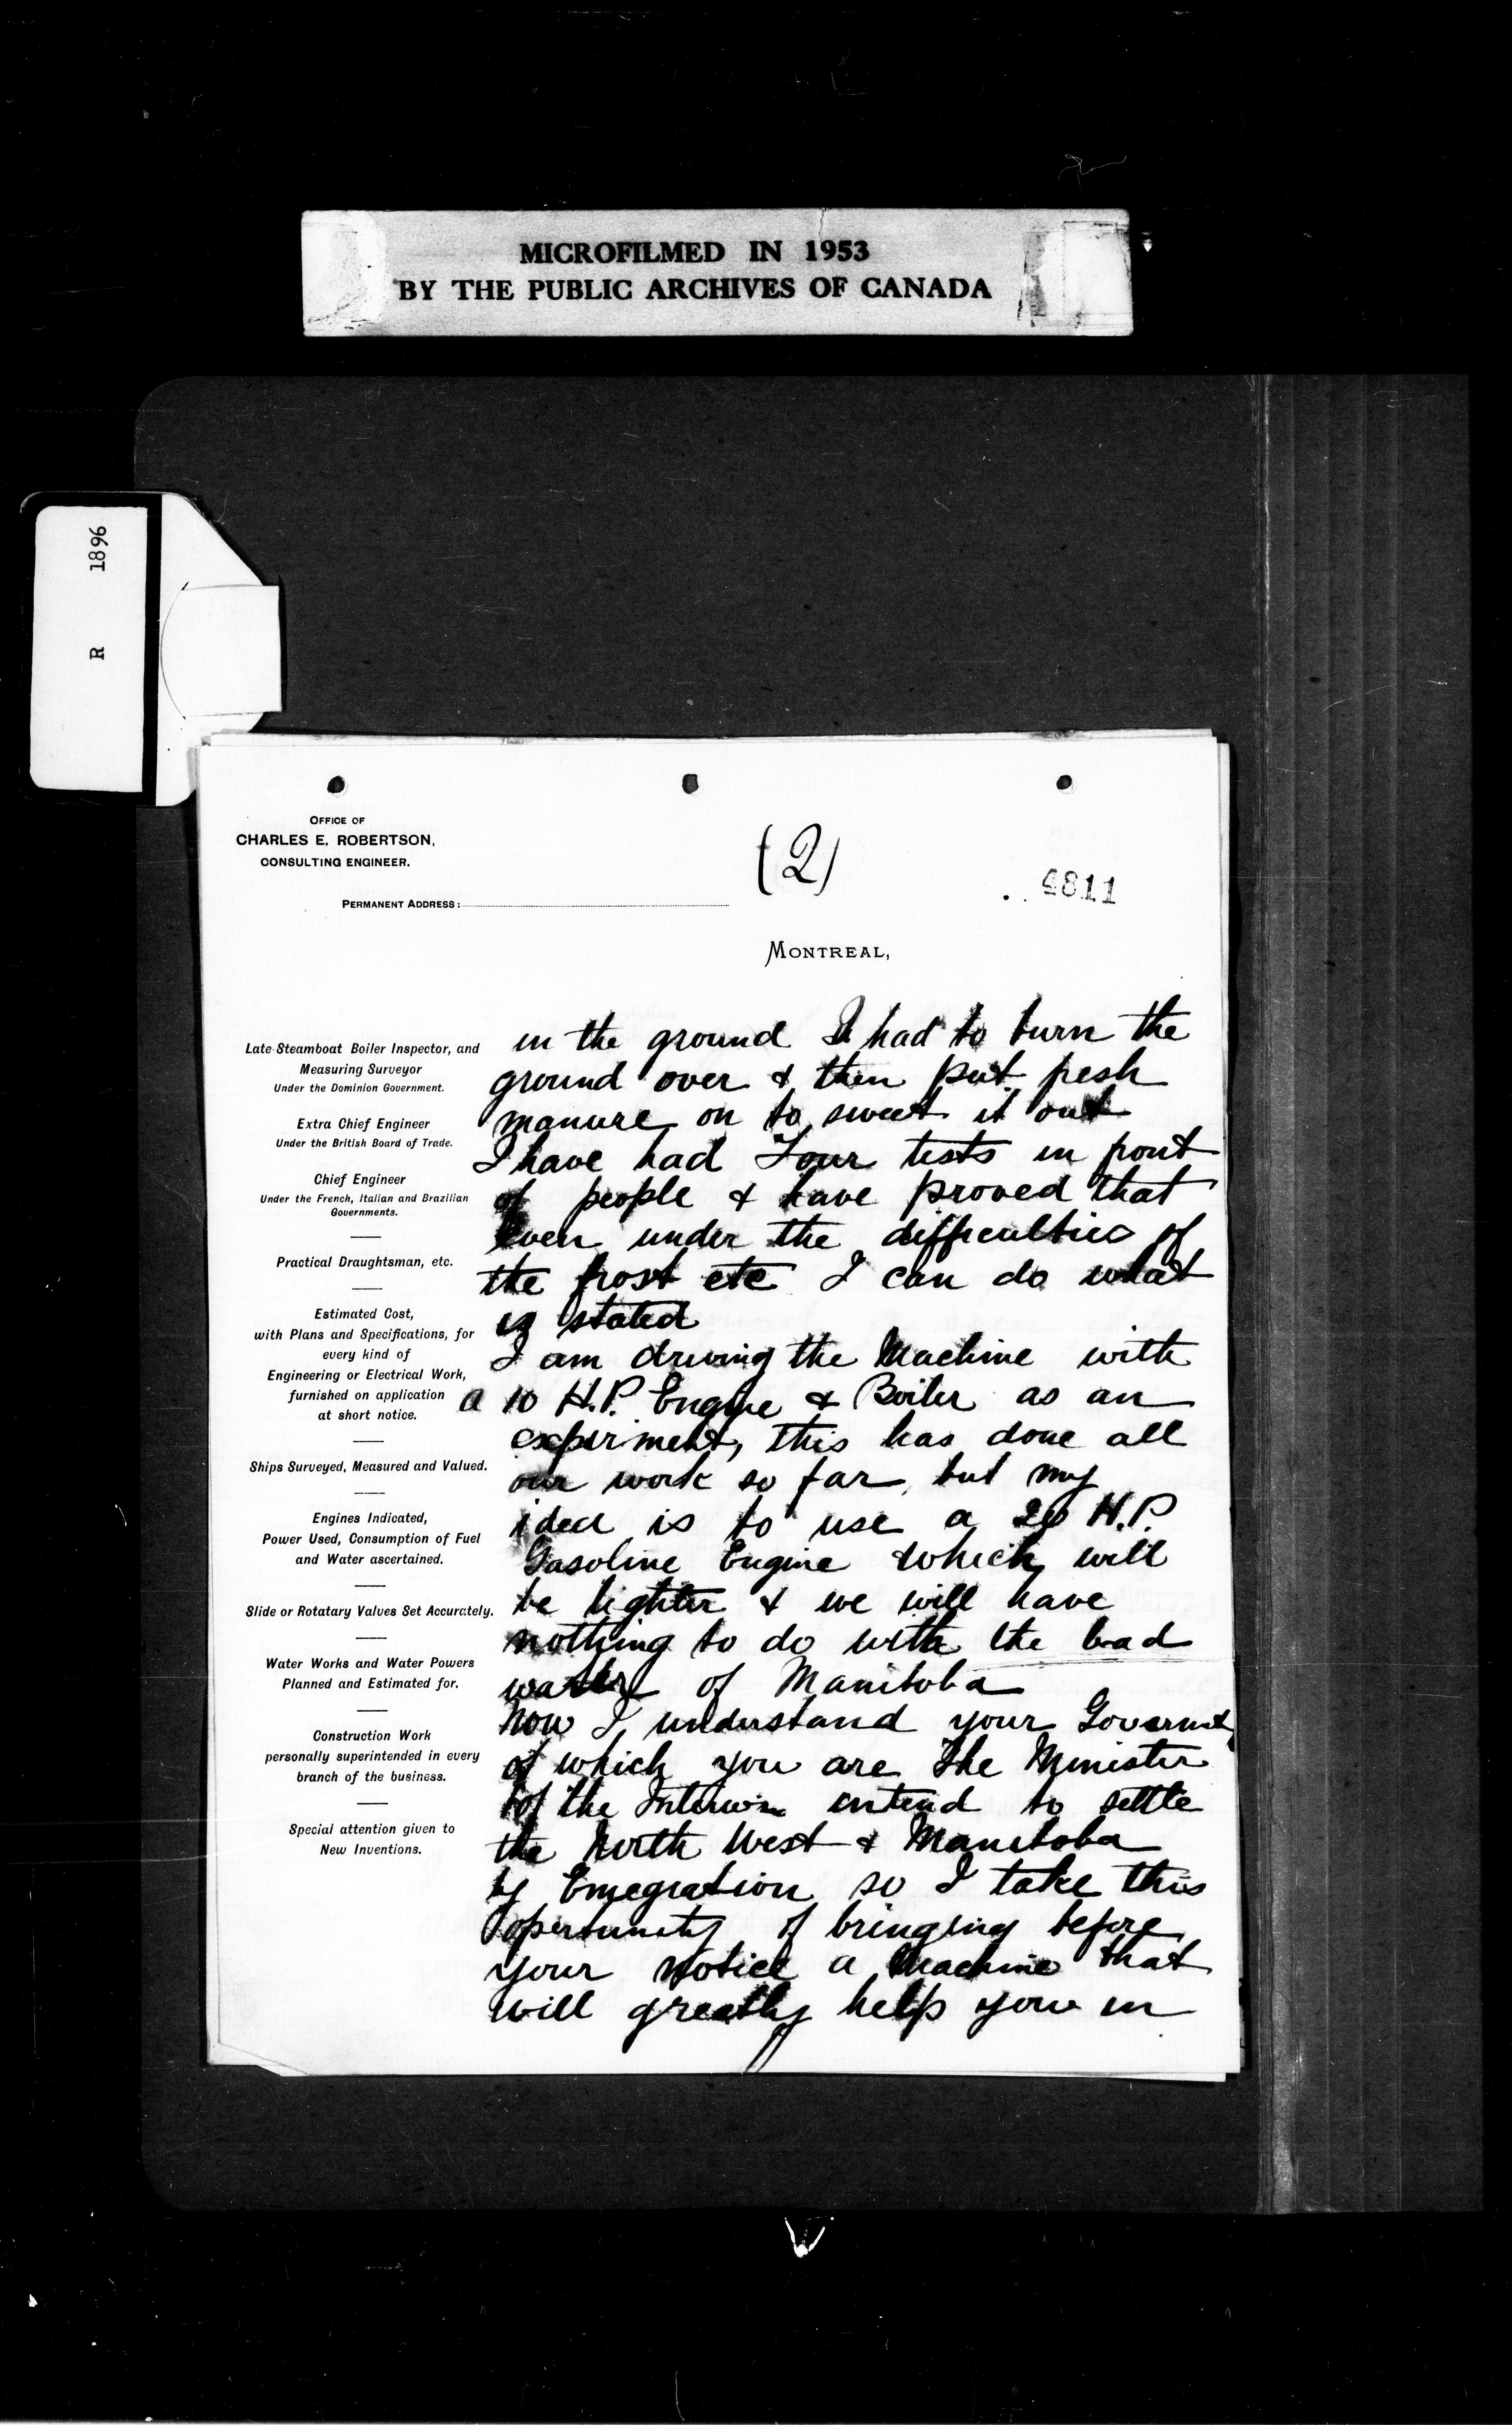 MICROFILMED IN 1953
BY THE PUBLIC ARCHIVES OF CANADA
R 1896
OFFICE OF
CHARLES E. ROBERTSON,
CONSULTING ENGINEER.
PERMANENT ADDRESS:
(2)
4811
MONTREAL,
Late Steamboat Boiler Inspector, and
Measuring Surveyor
Under the Dominion Government.
Extra Chief Engineer
Under the British Board of Trade.
Chief Engineer
Under the French, Italian and Brazilian
Governments.
Practical Draughtsman, etc.
Estimated Cost,
with Plans and Specifications, for
every kind of
Engineering or Electrical Work,
furnished on application
at short notice.
Ships Surveyed, Measured and Valued.
Engines Indicated,
Power Used, Consumption of Fuel
and Water ascertained.
Slide or Rotatary Valves Set Accurately.
Water Works and Water Powers
Planned and Estimated for.
Construction Work
personally superintended in every
branch of the business.
Special attention given to
New Inventions.
in the ground I had to turn the
ground over & then put fresh
manure on to sweet it out
I have had Four tests in front
of people & have proved that
even under the difficulties of
the frost etc I can do what
is stated
I am driving the Machine with
a 10 H.P. Engine & Boiler as an
experiment, this has done all
our work so far, but my
idea is to use a 20 H.P.
Gasoline Engine which will
be lighter & we will have
nothing to do with the bad
water of Manitoba
Now I understand your Governmt
of which you are the Minister
of the Interior intend to settle
the North West & Manitoba
by Emegration so I take this
opertunity of bringing before
your notice a Machine that
will greatly help you in